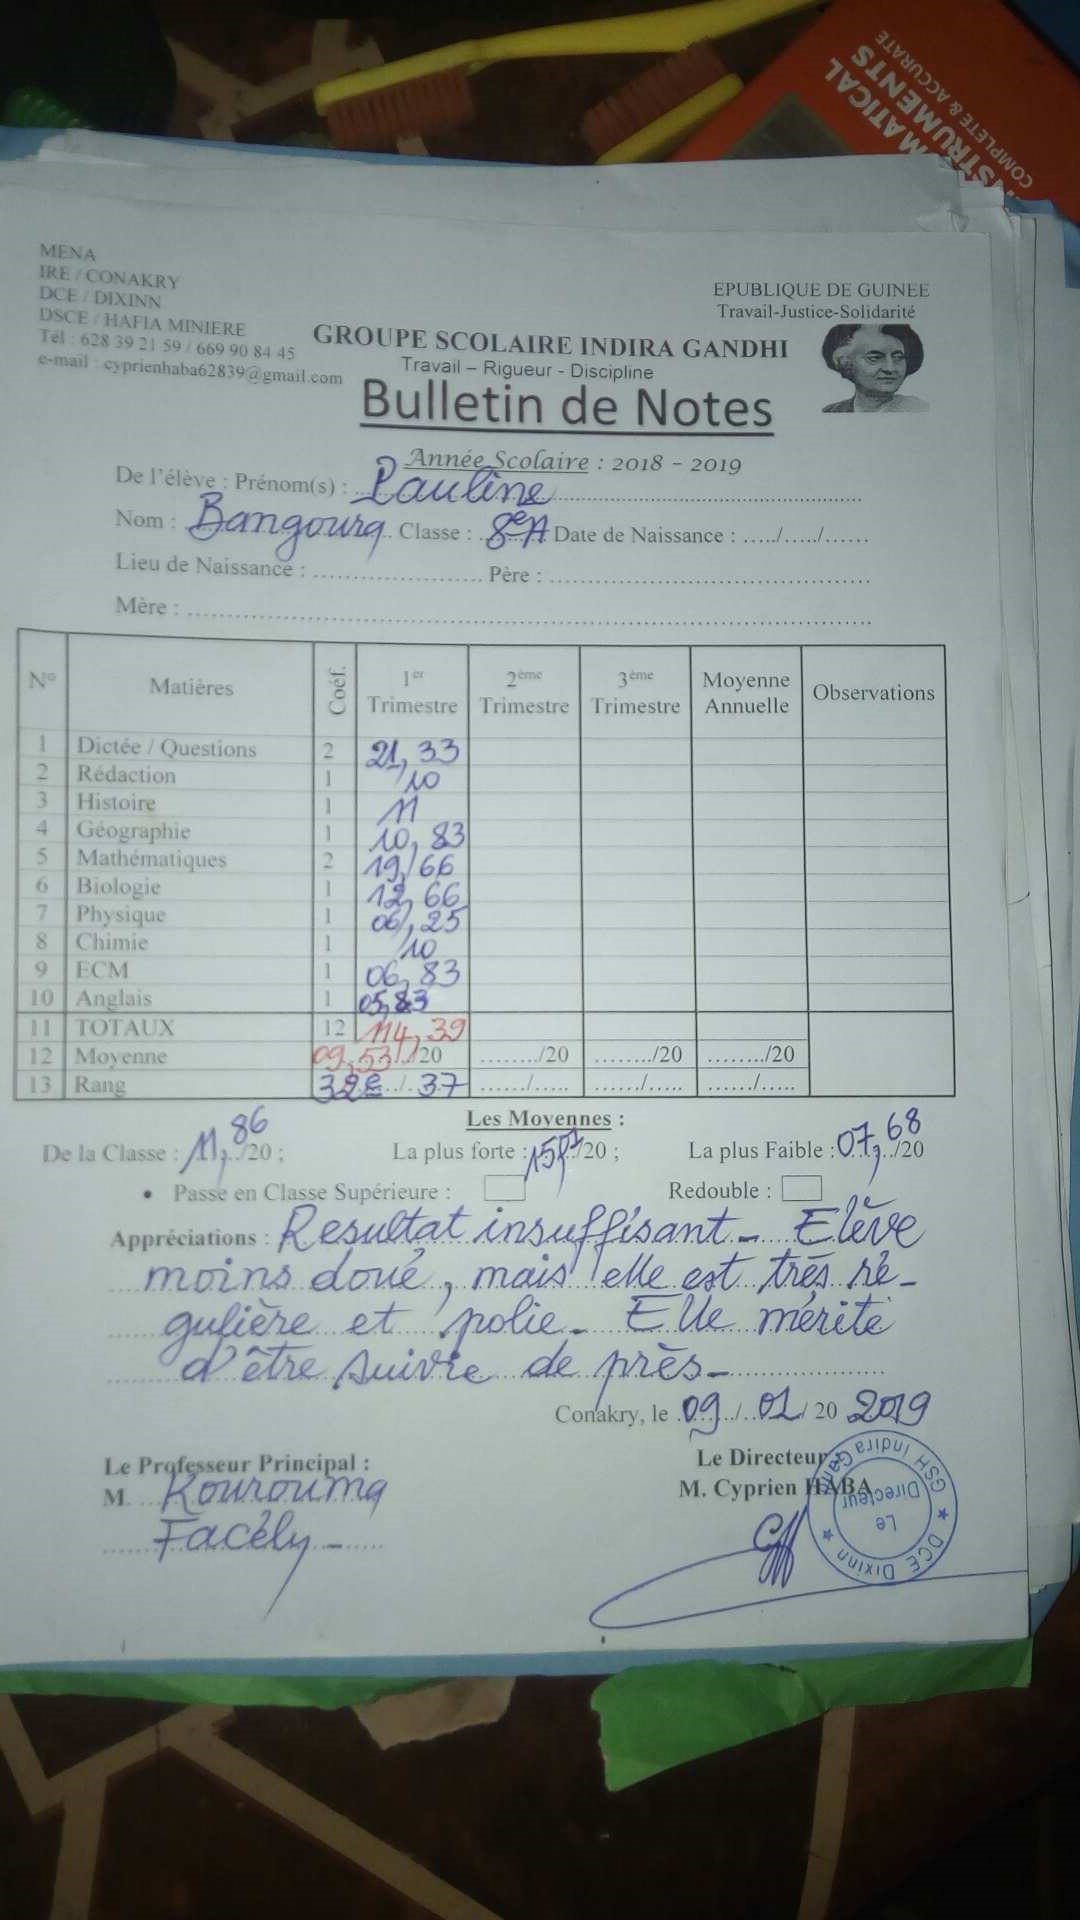 MATICAL
INSTRUMENTS
COMPLETE & ACCURATE
MENA
IRE / CONAKRY
DCE / DIXINN
DSCE / HAFIA MINIERE
Tél : 628 39 21 59 / 669 90 84 45
e-mail : cyprienhaba62839@gmail.com
EPUBLIQUE DE GUINEE
Travail-Justice-Solidarité
GROUPE SCOLAIRE INDIRA GANDHI
Travail – Rigueur - Discipline
Bulletin de Notes
Année Scolaire : 2018 - 2019
De l'élève : Prénom(s) : Pauline
Nom : Bangoura Classe : 8e A Date de Naissance : ...../...../......
Lieu de Naissance : ........................ Père : ................................
Mère : ................................
N° Matières Coéf. 1er Trimestre 2ème Trimestre 3ème Trimestre Moyenne Annuelle Observations
1 Dictée / Questions 2 21,33
2 Rédaction 1 10
3 Histoire 1 11
4 Géographie 1 10,83
5 Mathématiques 2 19,66
6 Biologie 1 12,66
7 Physique 1 06,25
8 Chimie 1 10
9 ECM 1 06,83
10 Anglais 1 05,83
11 TOTAUX 12 114,39
12 Moyenne 09,53/20 ......../20 ......../20 ......../20
13 Rang 32e / 37 ....../..... ....../..... ....../.....
Les Moyennes :
De la Classe : 11,86/20 ; La plus forte : 15,07/20 ; La plus Faible : 07,68/20
• Passe en Classe Supérieure : Redouble :
Appréciations : Resultat insuffisant - Elève
moins doué, mais elle est très ré-
gulière et polie - Elle mérite
d'être suivie de près -
Conakry, le 09 / 01 / 20 2019
Le Professeur Principal :
M. Kourouma
Facély -
Le Directeur
M. Cyprien HABA
GSH Indira Gandhi
Le Directeur
★ DCE Dixinn ★